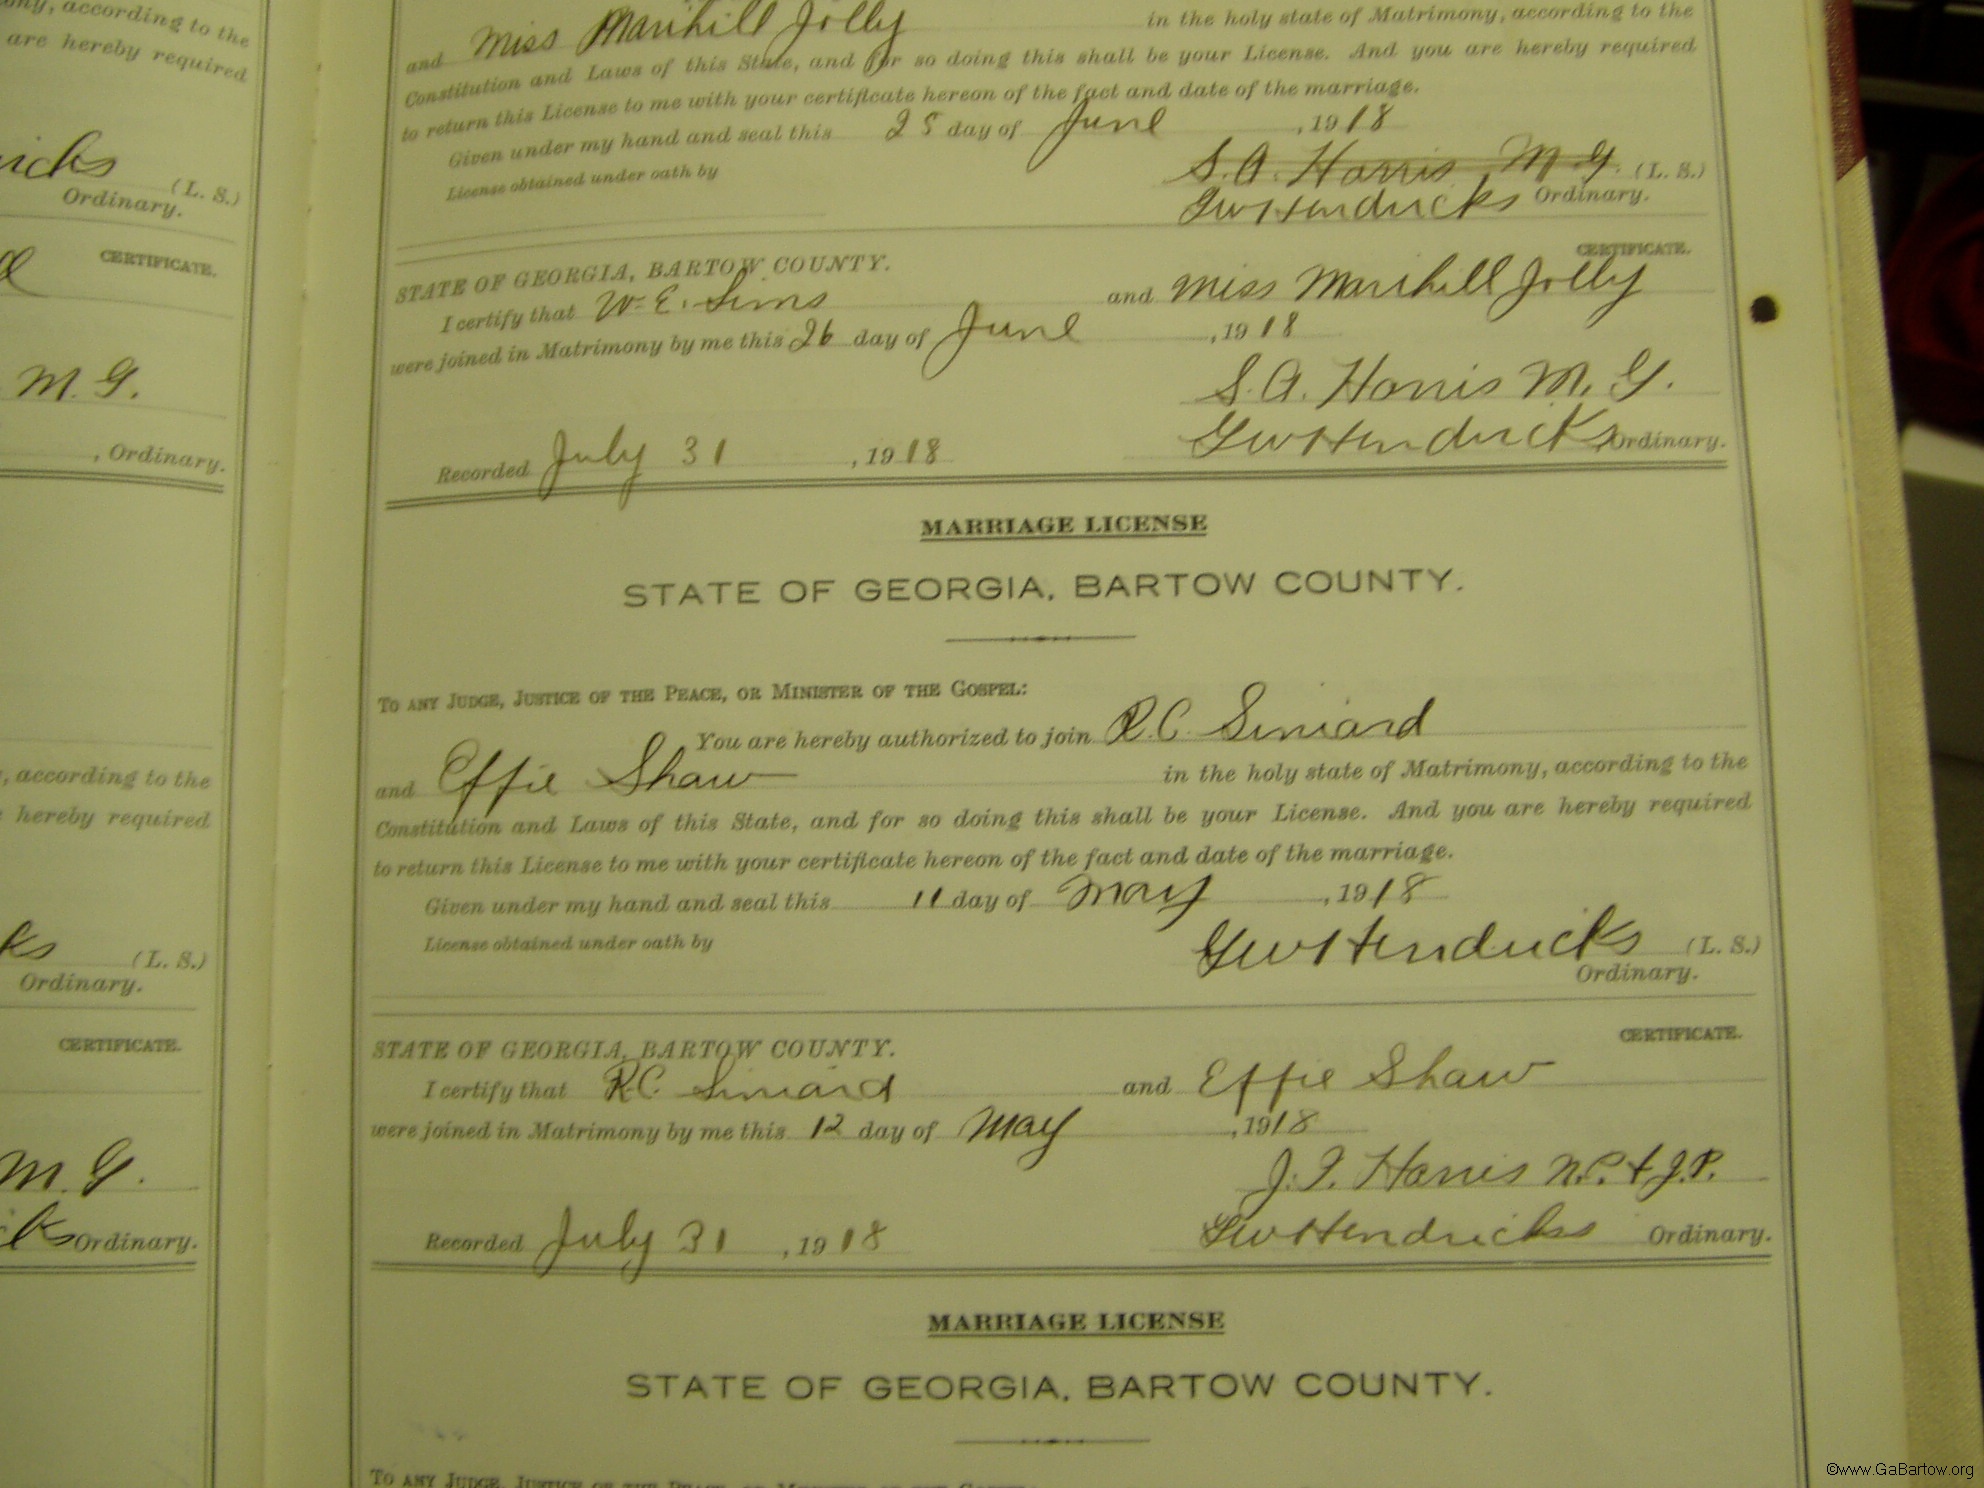 ony, according to the
are hereby required
(L. S.)
Ordinary.
CERTIFICATE.
M. G.
, Ordinary.
, according to the
hereby required
ks (L. S.)
Ordinary.
CERTIFICATE.
M. G.
Ordinary.
and Miss Marihill Jolly in the holy state of Matrimony, according to the
Constitution and Laws of this State, and for so doing this shall be your License. And you are hereby required
to return this License to me with your certificate hereon of the fact and date of the marriage.
Given under my hand and seal this 25 day of June , 1918
License obtained under oath by S. A. Harris M. G. (L. S.)
GW Hendricks Ordinary.
CERTIFICATE.
STATE OF GEORGIA, BARTOW COUNTY.
I certify that W. E. Sims and Miss Marihill Jolly
were joined in Matrimony by me this 26 day of June , 1918
S. A. Harris M. G.
GW Hendricks Ordinary.
Recorded July 31 , 1918
MARRIAGE LICENSE
STATE OF GEORGIA, BARTOW COUNTY.
TO ANY JUDGE, JUSTICE OF THE PEACE, OR MINISTER OF THE GOSPEL:
You are hereby authorized to join R. C. Siniard
and Effie Shaw in the holy state of Matrimony, according to the
Constitution and Laws of this State, and for so doing this shall be your License. And you are hereby required
to return this License to me with your certificate hereon of the fact and date of the marriage.
Given under my hand and seal this 11 day of May , 1918
License obtained under oath by GW Hendricks (L. S.)
Ordinary.
CERTIFICATE.
STATE OF GEORGIA, BARTOW COUNTY.
I certify that R. C. Siniard and Effie Shaw
were joined in Matrimony by me this 12 day of May , 1918
Harris N. P. & J. P.
Recorded July 31 , 1918 GW Hendricks Ordinary.
MARRIAGE LICENSE
STATE OF GEORGIA, BARTOW COUNTY.
TO ANY JUDGE, JUSTICE OF THE PEACE, OR MINISTER OF THE GOSPEL:
©www.GaBartow.org